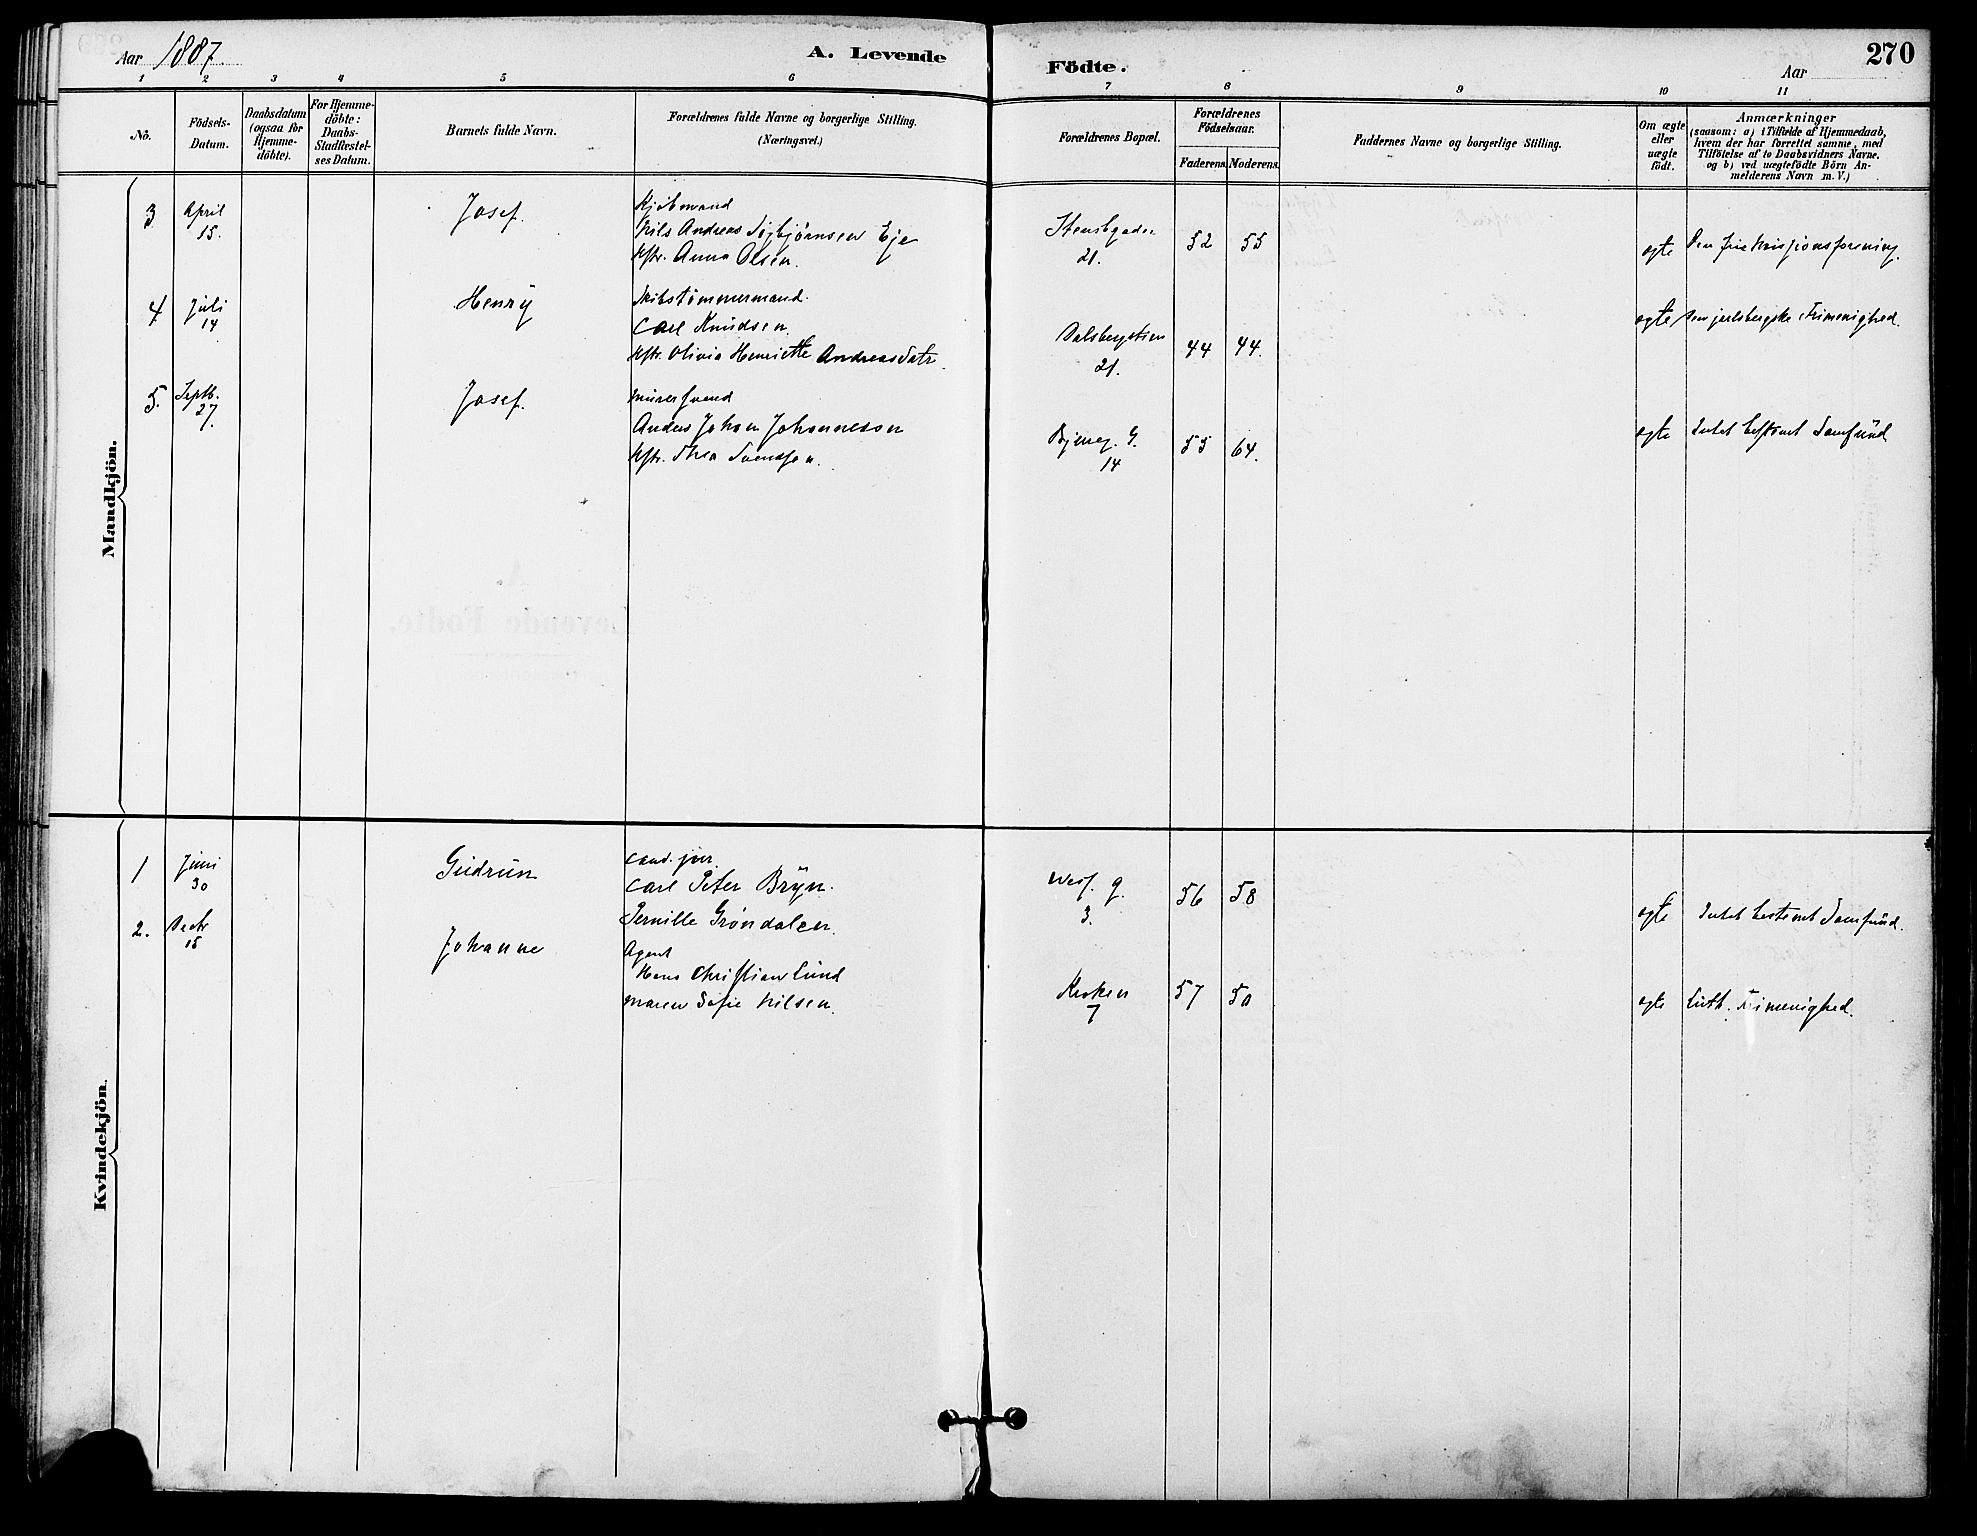 Aar 1887.
A. Levende
Födte.
Aar
270
1 2 3 4 5 6 7 8 9 10 11
No.
Födsels-
Datum.
Daabsdatum
(ogsaa for
Hjemme-
döbte).
For Hjemme-
döbte:
Daabs-
Stadfæstel-
ses Datum.
Barnets fulde Navn.
Forældrenes fulde Navne og borgerlige Stilling.
(Næringsvei.)
Forældrenes Bopæl.
Forældrenes
Födselsaar.
Faderens.
Moderens.
Faddernes Navne og borgerlige Stilling.
Om ægte
eller
uægte
födt.
Anmærkninger
(saasom: a) i Tilfælde af Hjemmedaab,
hvem der har forrettet samme, med
Tilföielse af to Daabsvidners Navne,
og b) ved uægtefödte Börn An-
melderens Navn m. V.)
Mandkjön.
3 April
15.
Josef.
Kjöbmand
Nils Andreas Eje
Hstr. Anna Olsen.
Stensbgaden
21.
52 55
ægte
Den frie Missionsforening.
4 Juli
14
Henry
Skibstømmermand.
Carl Knudsen
Hstr. Olivia Henriette Andreasdatr.
Dalsbergstien
21.
44 44.
ægte
Den jarlsbergske Frimenighed.
5. Septb.
27.
Josef.
Murersvend
Anders Johan Johannesson
Hstr. Thea Svendsen.
14
55 64.
ægte
Intet bestemt Samfund
Kvindekjön.
1 Juni
30
Gudrun
cand. jur.
Carl Peter Bryn.
Pernille Grøndalen.
3.
56 58
ægte
Intet bestemt Samfund.
2. Decbr
15
Johanne
Agent
Hans Christian Lund
Maren Sofie Nilsen.
Kroken
7
57 50
ægte
Luth. Frimenighed.